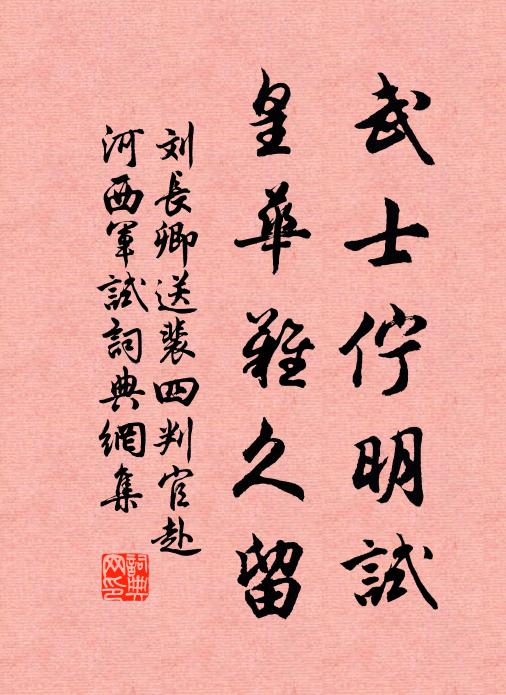 武士佇明試
皇華難久留
刘長卿送裴四判官赴
河西軍試詞典網集
詞典網印